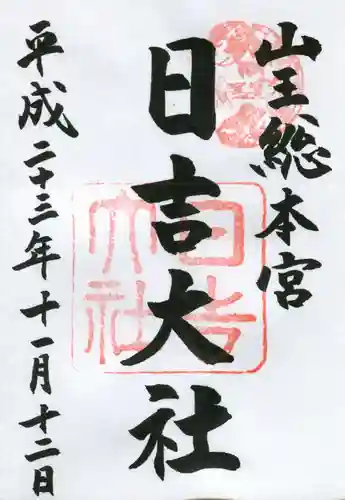 山王総本宮
日吉大社
平成二十三年十一月十二日
日吉
大社